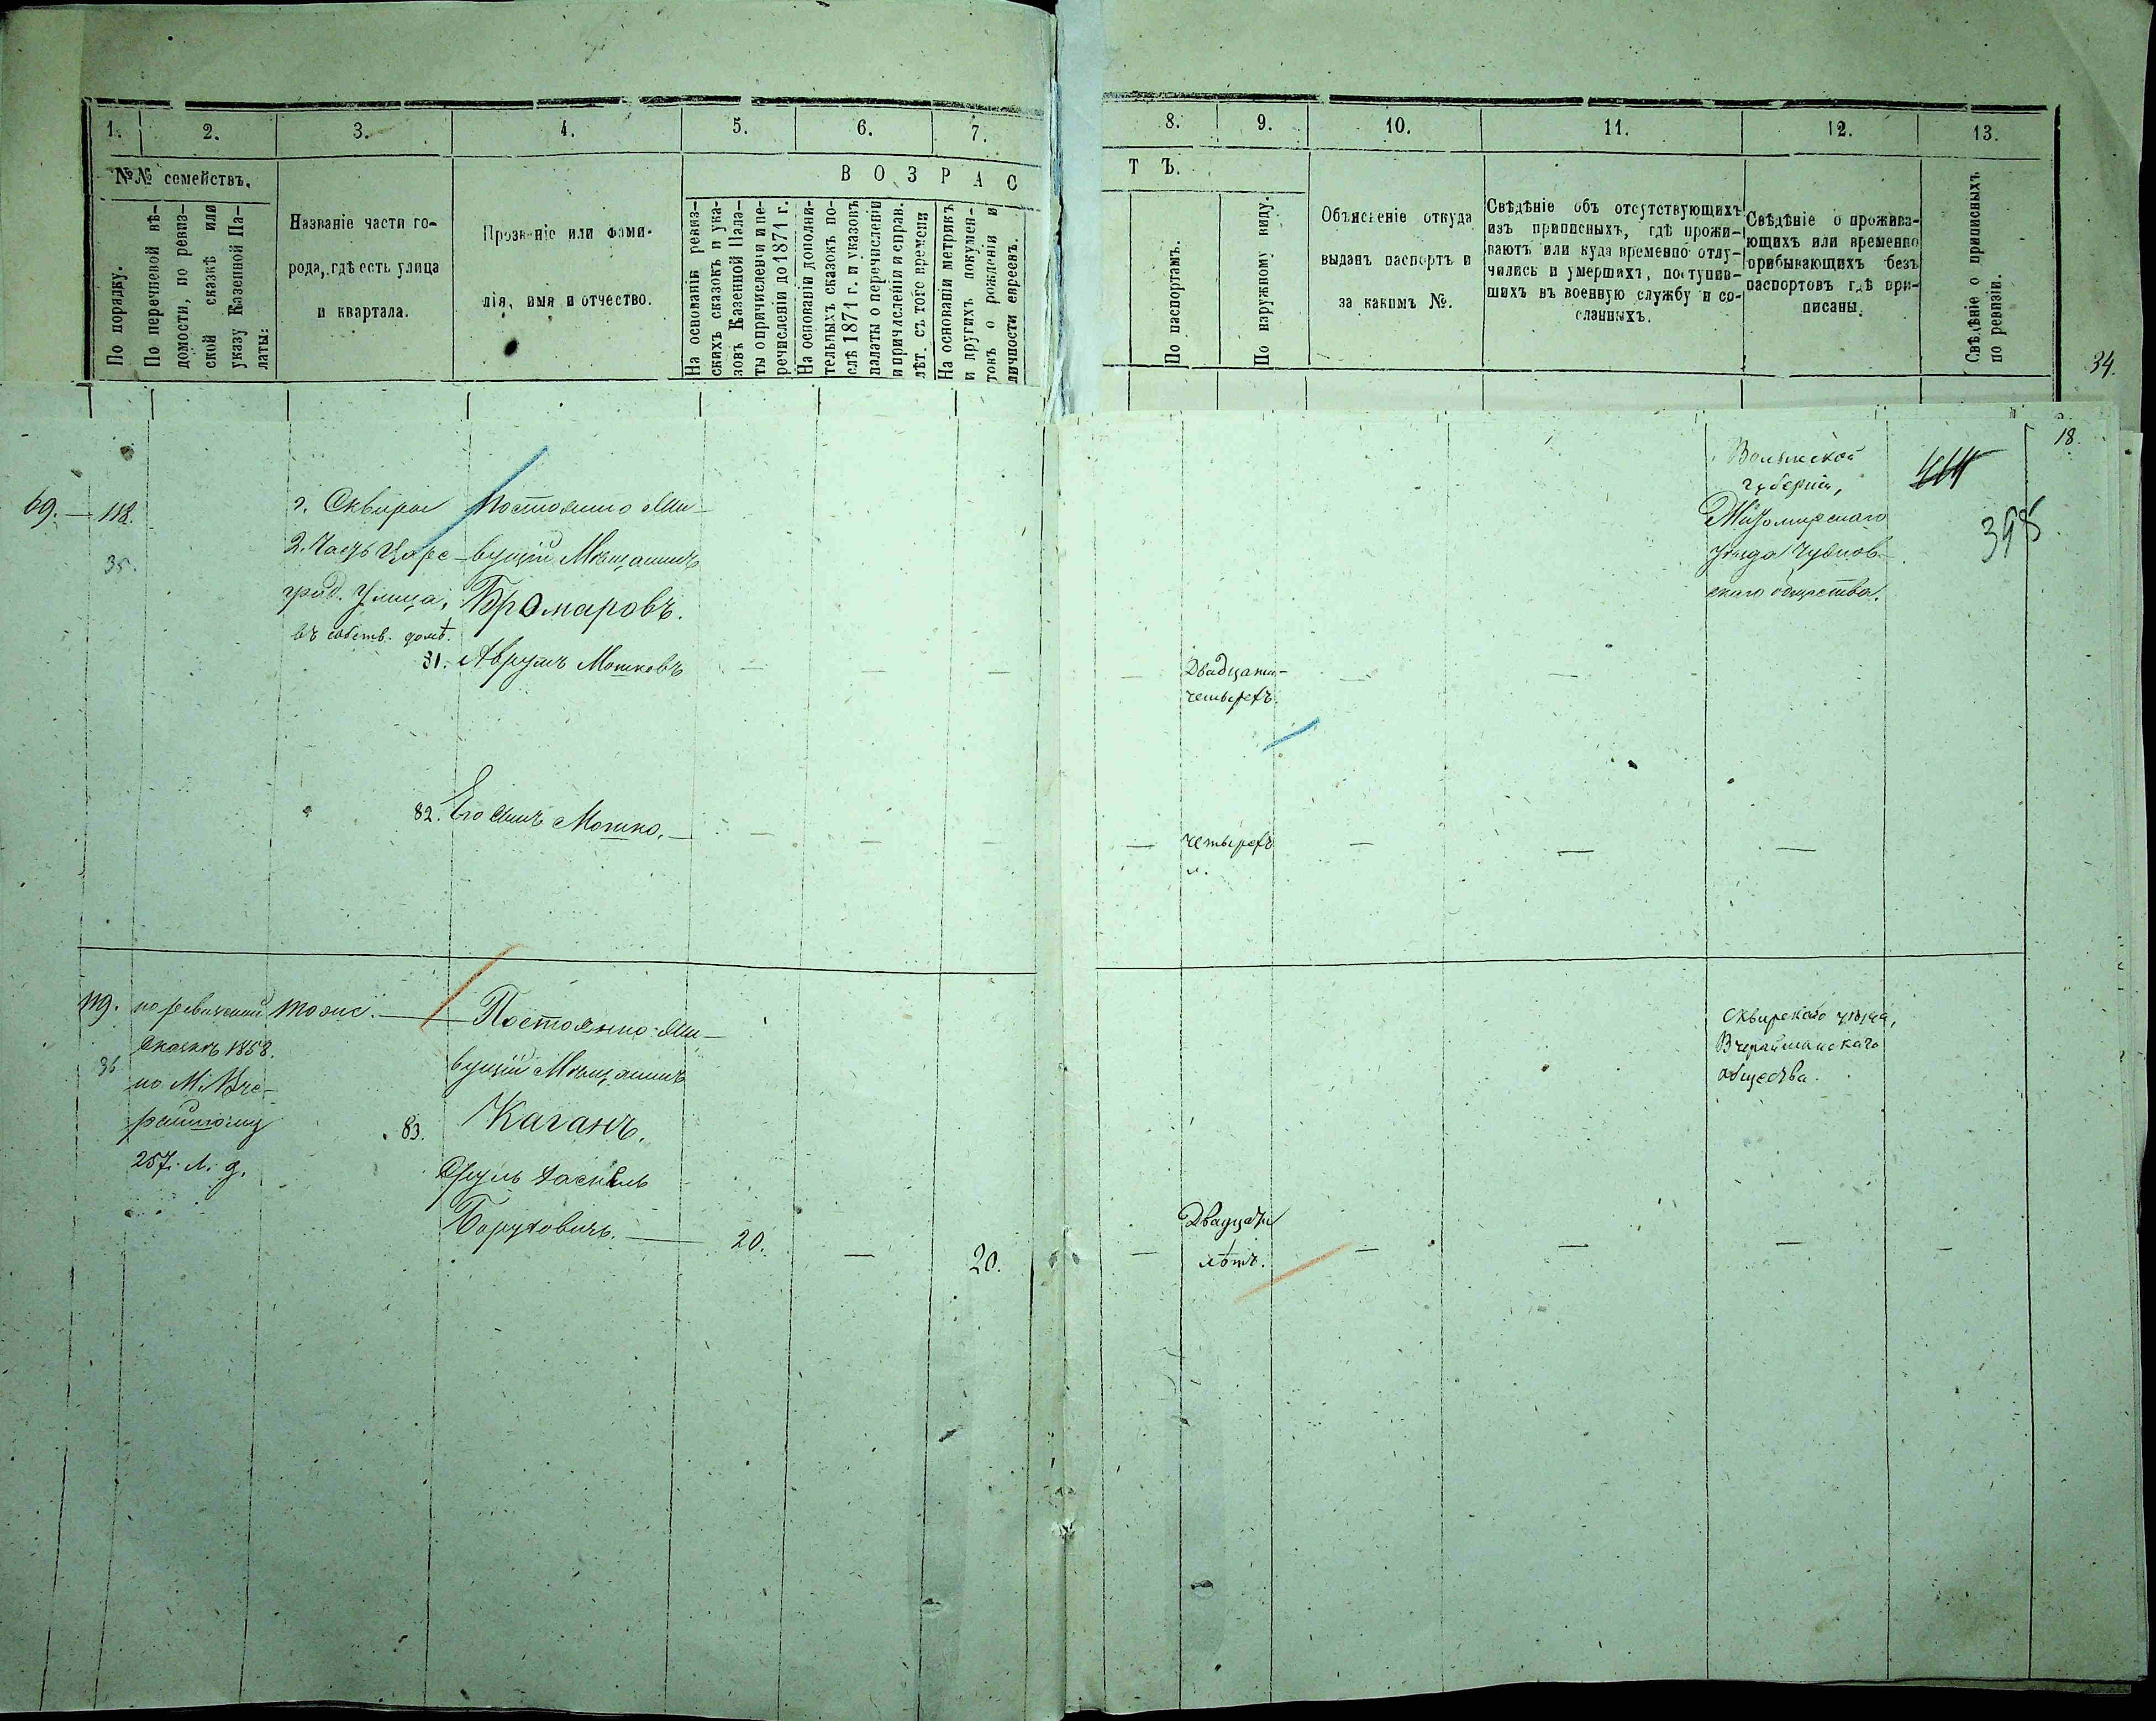 1.
2.
3.
4.
5.
6.
7.
8.
9.
10.
11.
12.
13.
№№ семействъ.
По порядку.
По перечневой вѣ-
домости, по ревиз-
ской сказкѣ или
указу Казенной Па-
латы:
Названіе части го-
рода, гдѣ есть улица
и квартала.
Прозваніе или фами-
лія, имя и отчество.
ВОЗРАС
ТЪ.
На основаніи ревиз-
скихъ сказокъ и ука-
зовъ Казенной Пала-
ты о причисленіи и пе-
речисленіи до 1871 г.
На основаніи дополни-
тельныхъ сказокъ по-
слѣ 1871 г. и указовъ
палаты о перечисленіи
и причисленіи и справ.
лѣт. съ того времени
На основаніи метрикъ
и другихъ докумен-
товъ о рожденіи и
личности евреевъ.
По паспортамъ.
По наружному виду.
Объясненіе откуда
выданъ паспортъ и
за какимъ №.
Свѣдѣніе объ отсутствующихъ
изъ приписныхъ, гдѣ прожи-
ваютъ или куда временно отлу-
чились и умершихъ, поступив-
шихъ въ военную службу и со-
сланныхъ.
Свѣдѣніе о прожива-
ющихъ или временно
прибывающихъ безъ
паспортовъ гдѣ при-
писаны.
Свѣдѣніе о приписныхъ
по ревизіи.
34.
18.
69. — 118.
35.
г. Сквира
2. Часть Царе-
град. Улица,
въ собств. домѣ.
Постоянно Жи-
вущій Мѣщанинъ
Бромаровъ.
81. Аврумъ Мошковъ
Двадцати-
четырехъ.
Волынской
губерніи,
Житомирскаго
уѣзда Чуднов-
скаго общества.
398
82. Его Сынъ Мошко.
четырехъ
л.
119.
36
по ревизской
Сказкѣ 1858.
по М. Вче-
райшому
257. М. д.
тоже.
Постоянно Жи-
вущій Мѣщанинъ
83. Каганъ.
Сруль Хаскель
Боруховичъ. — 20.
20.
Двадцати
лѣтъ.
Сквирскаго уѣзда,
Вчерайшанскаго
общества.